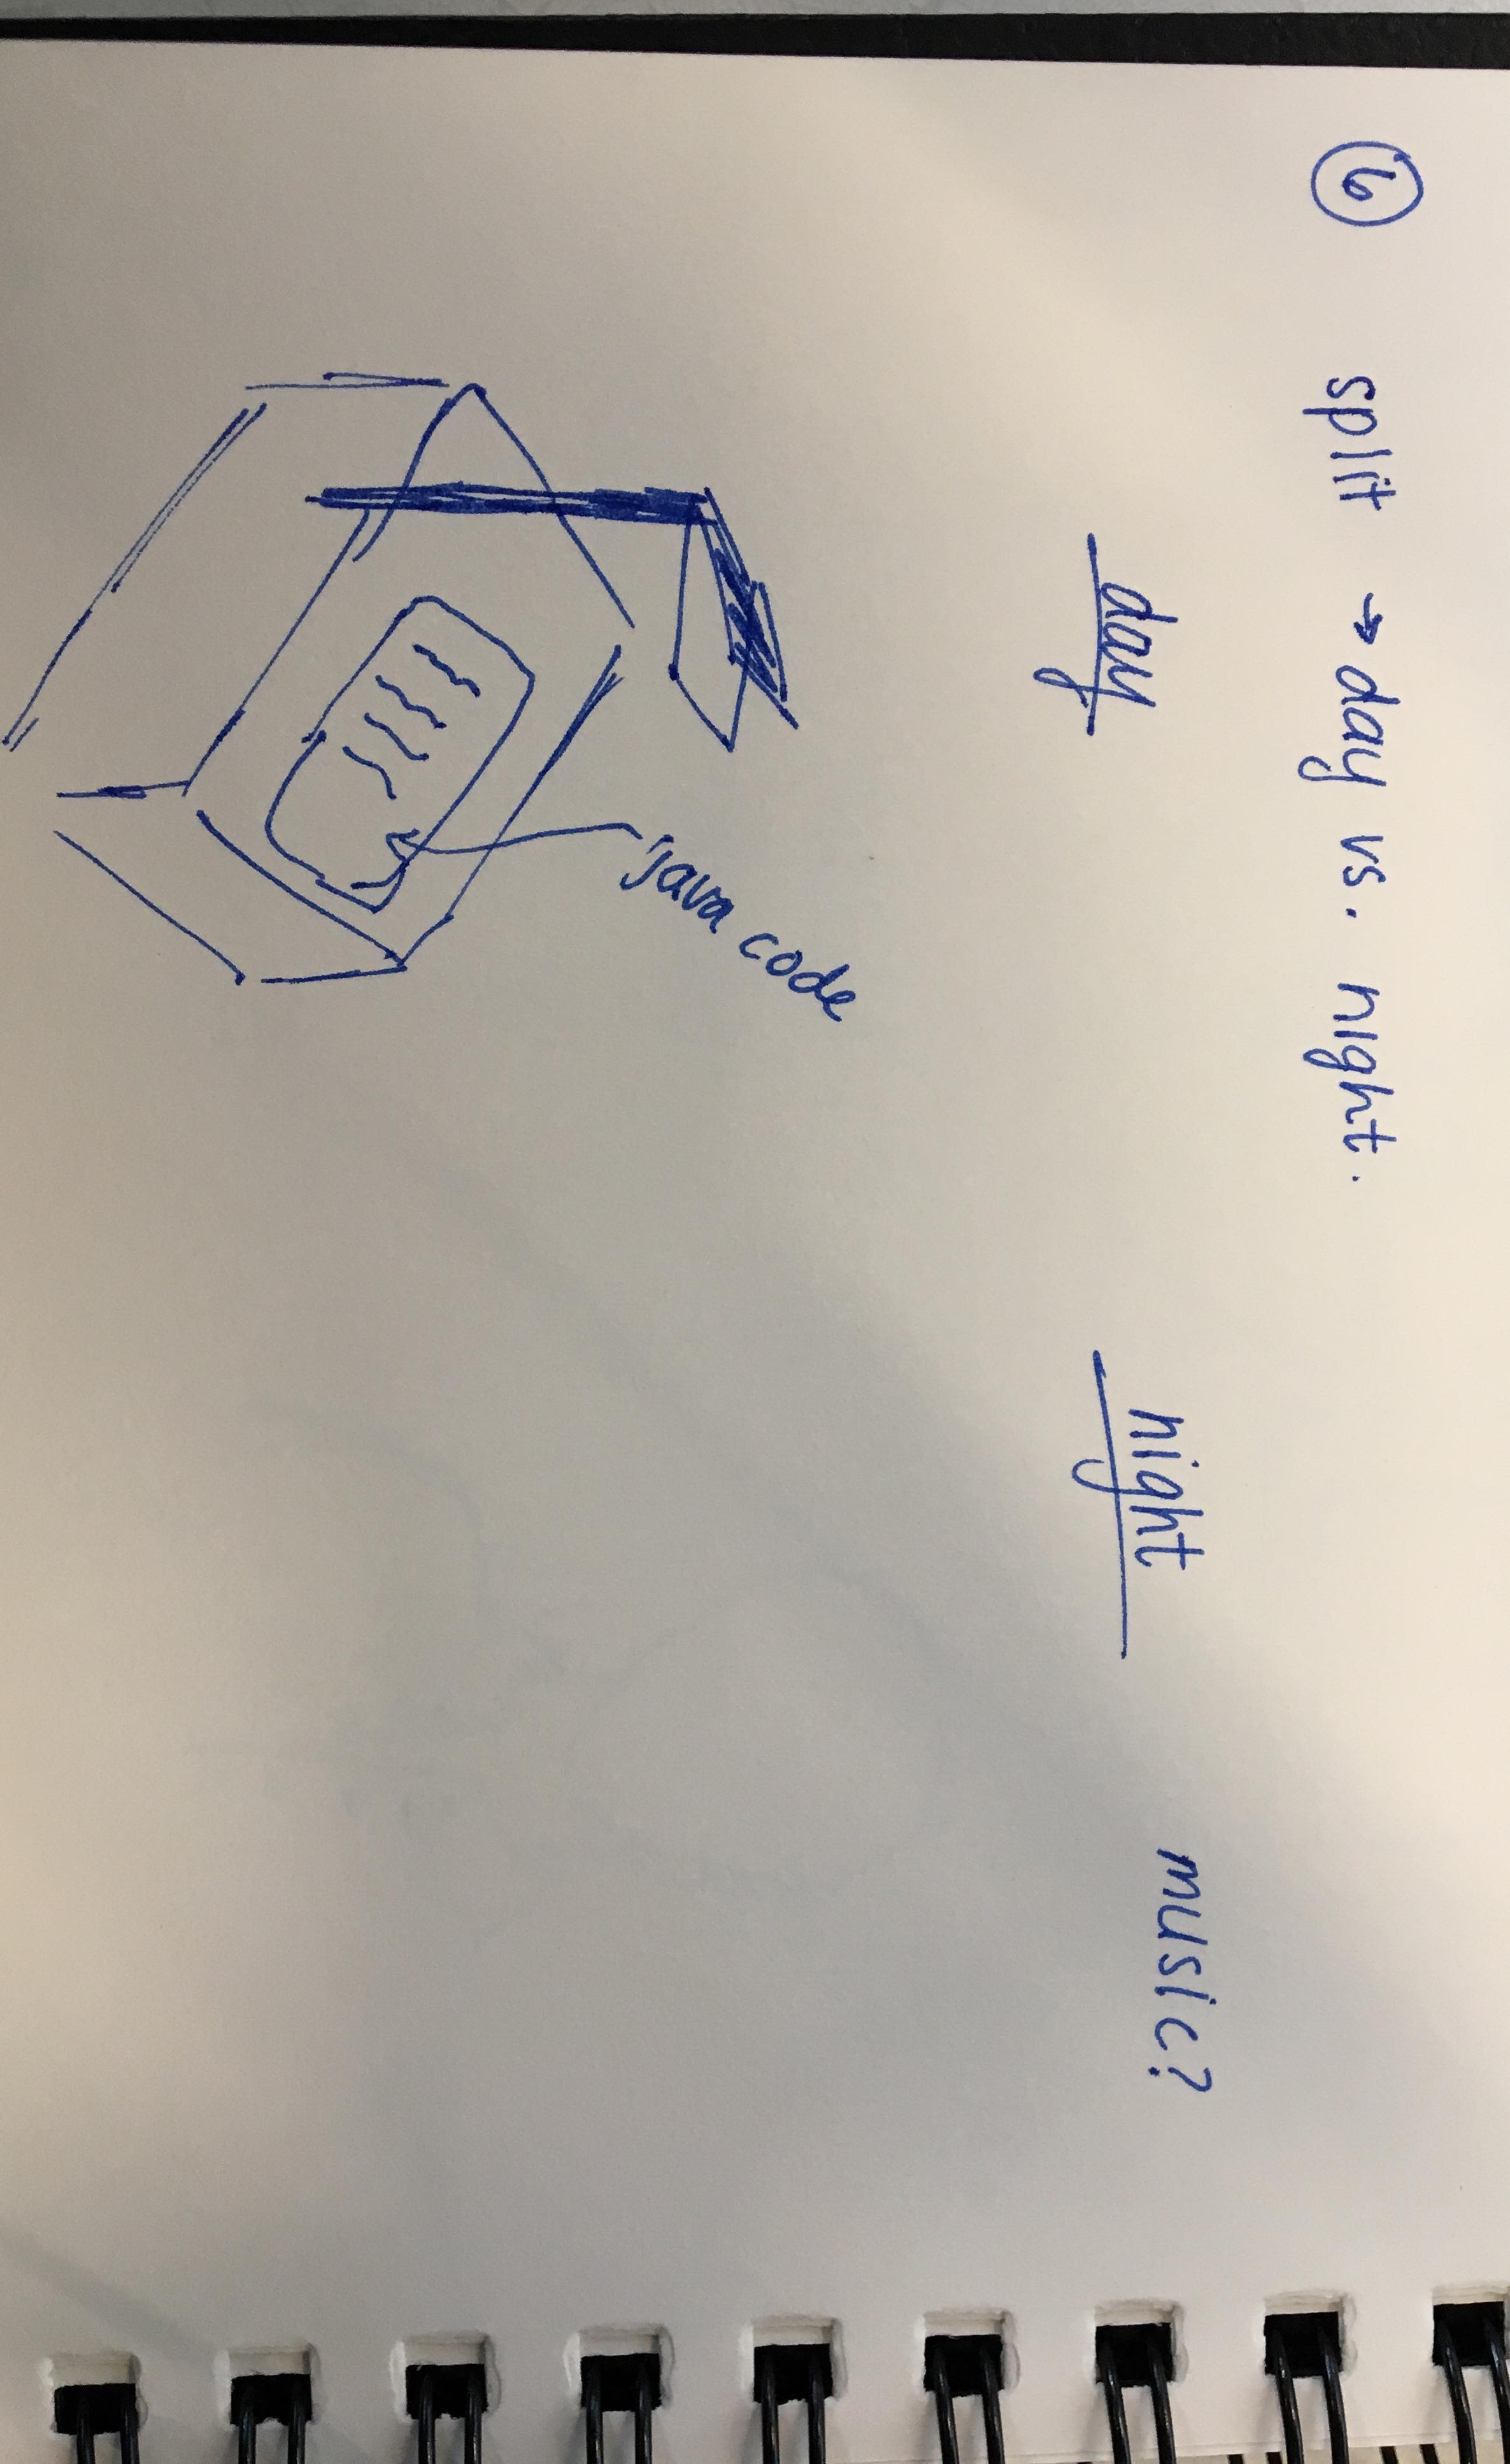 6 split → day vs. night.
day
night
music?
java code